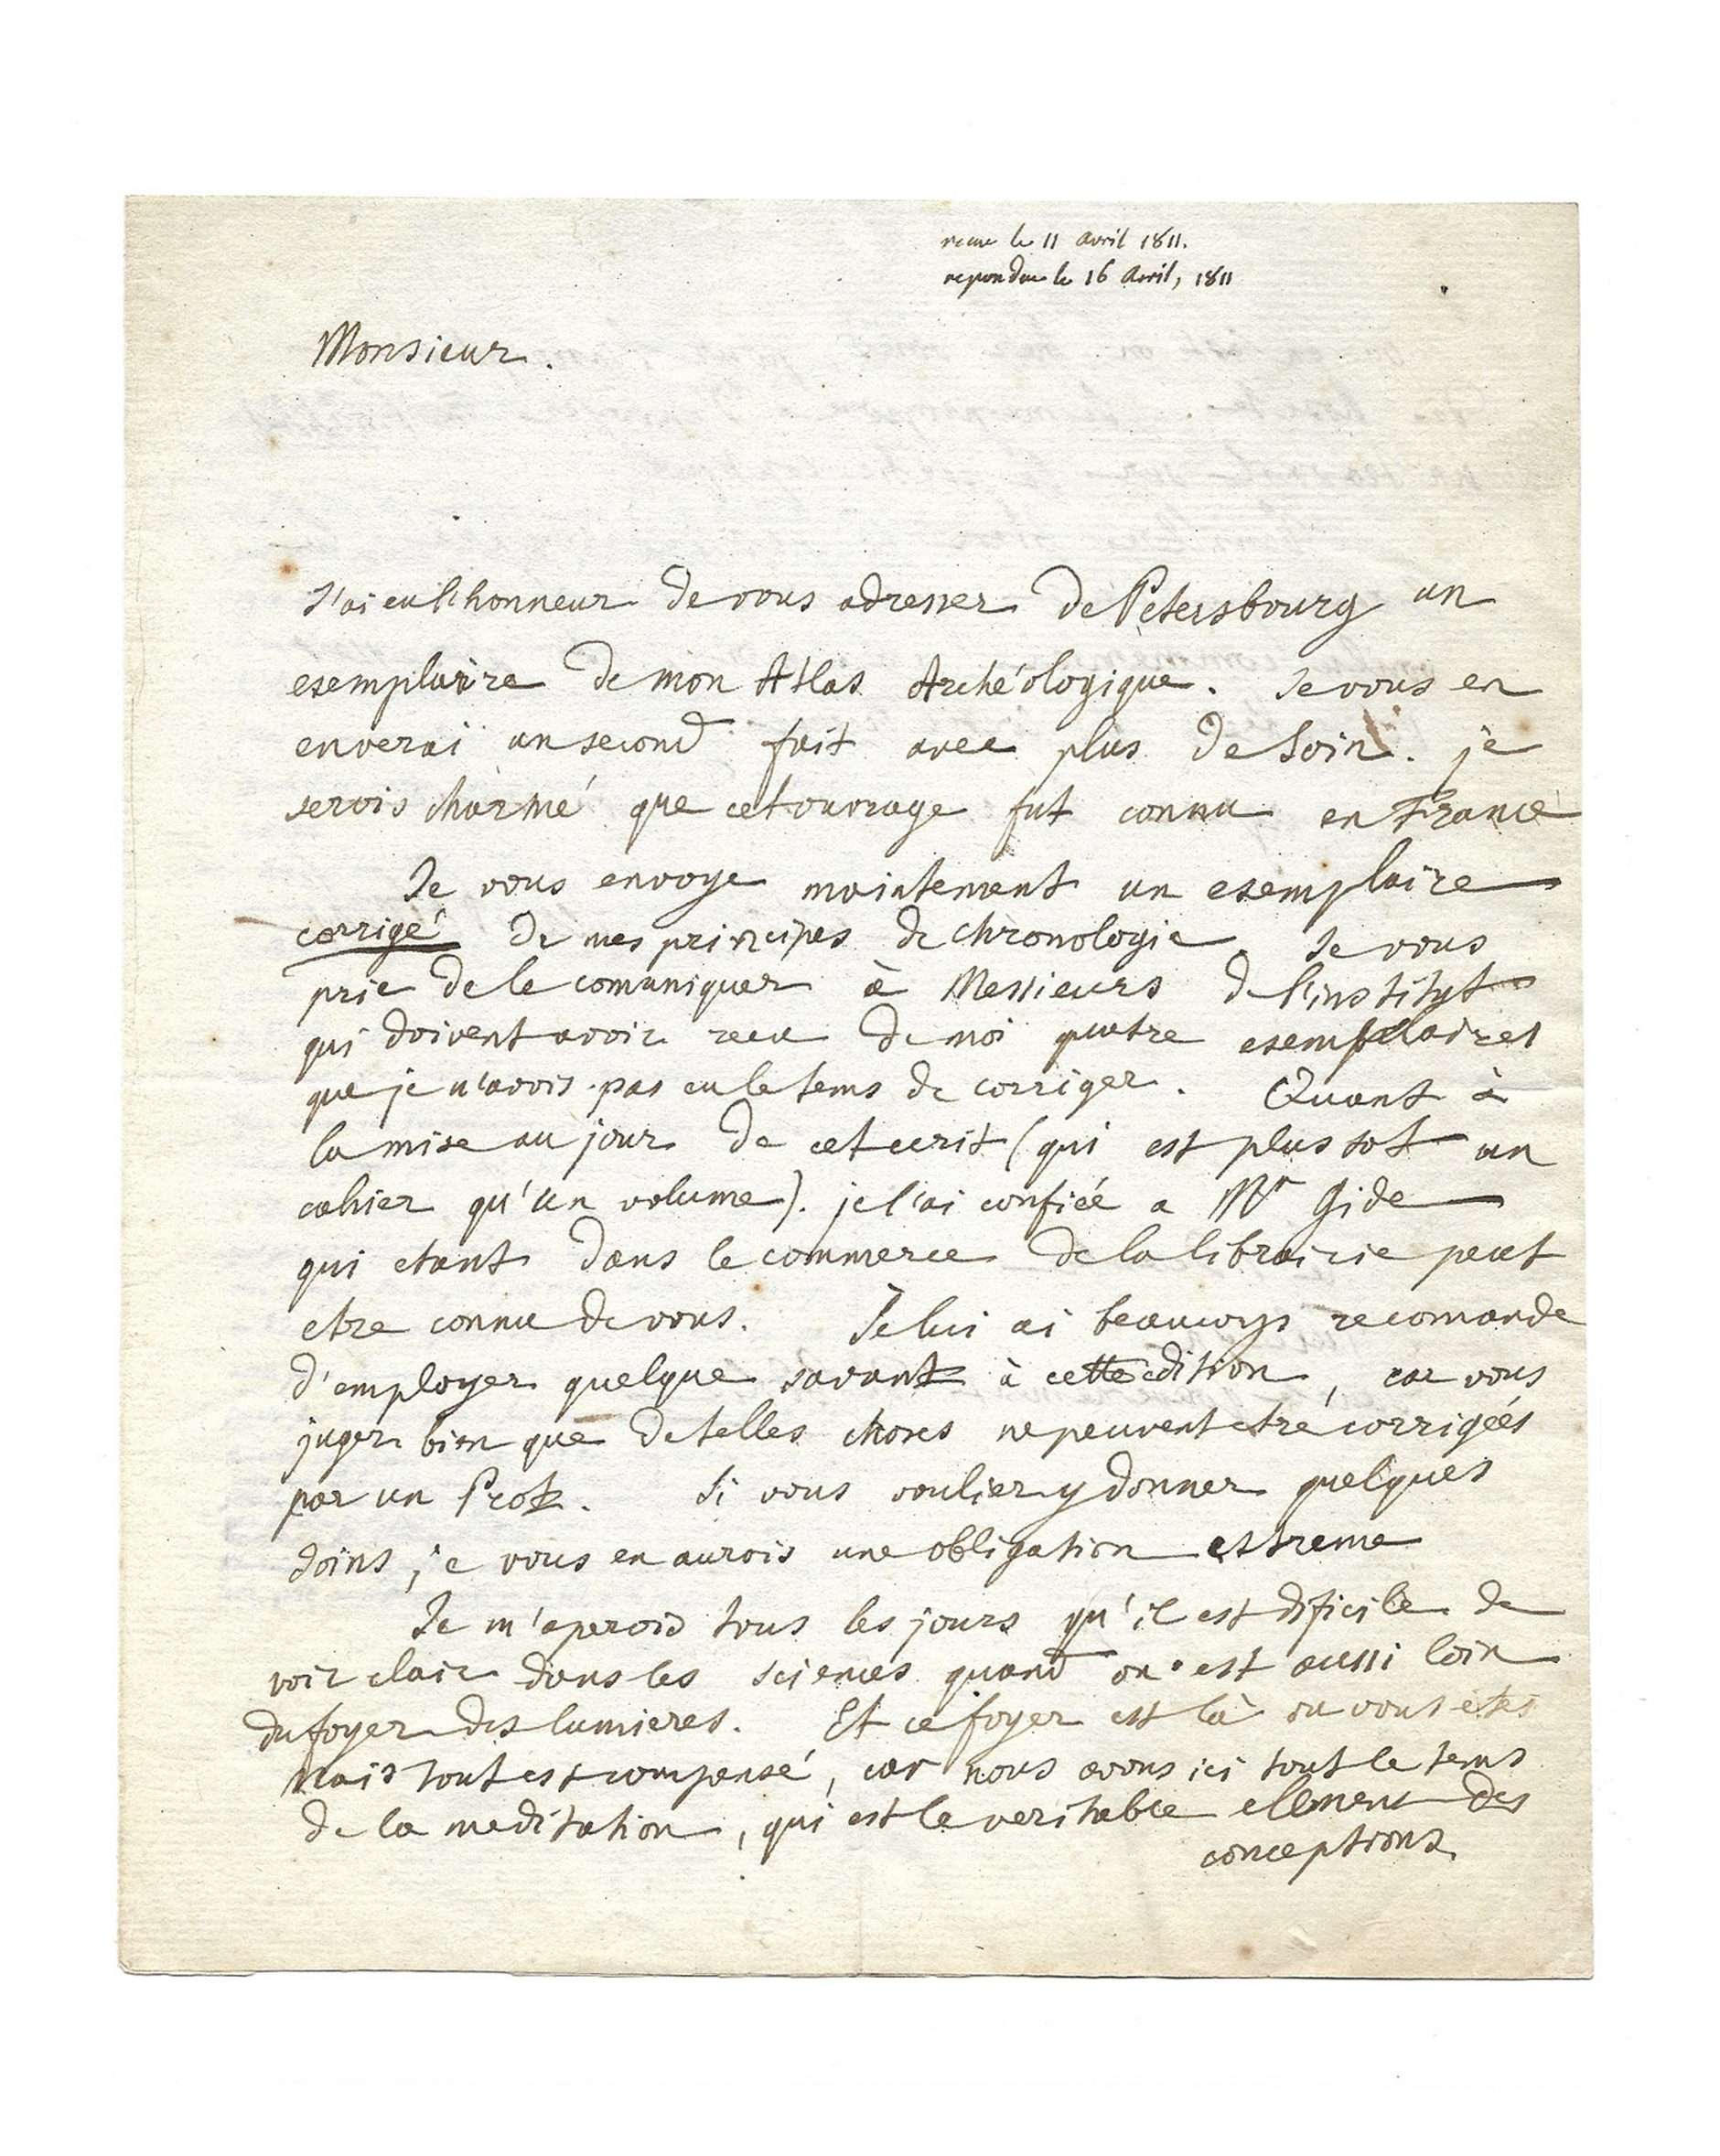 recue le 11 Avril 1811.
repondue le 16 Avril, 1811
Monsieur.
J'ai eu l'honneur de vous adresser de Petersbourg un
exemplaire de mon Atlas Archéologique. Je vous en
enverai un second fait avec plus de soin. je
serois charmé que cet ouvrage fut connu en France
Je vous envoye maintenant un exemplaire
corrigé de mes principes de chronologie. Je vous
prie de le comuniquer à Messieurs de l'institut
qui doivent avoir recu de moi quatre exemplaires
que je n'avois pas eu le tems de corriger. Quant à
la mise au jour de cet ecrit (qui est plus tot un
cahier qu'un volume). je l'ai confiéé a Mr Gide
qui etant dans le commerce de la librairie peut
etre connu de vous. Je lui ai beaucoup recomandé
d'employer quelque savant à cette edition, car vous
juger bien que de telles choses ne peuvent etre corrigéés
par un Prot. Si vous voulier y donner quelques
soins, je vous en aurois une obligation extreme
Je m'aperois tous les jours qu'il est dificile de
voir clair dans les sciences quand on est aussi loin
du foyer des lumieres. Et ce foyer est là ou vous etes
Mais tout est compensé, car nous avons ici tout le tems
de la meditation, qui est le veritable ellement des
conceptions.